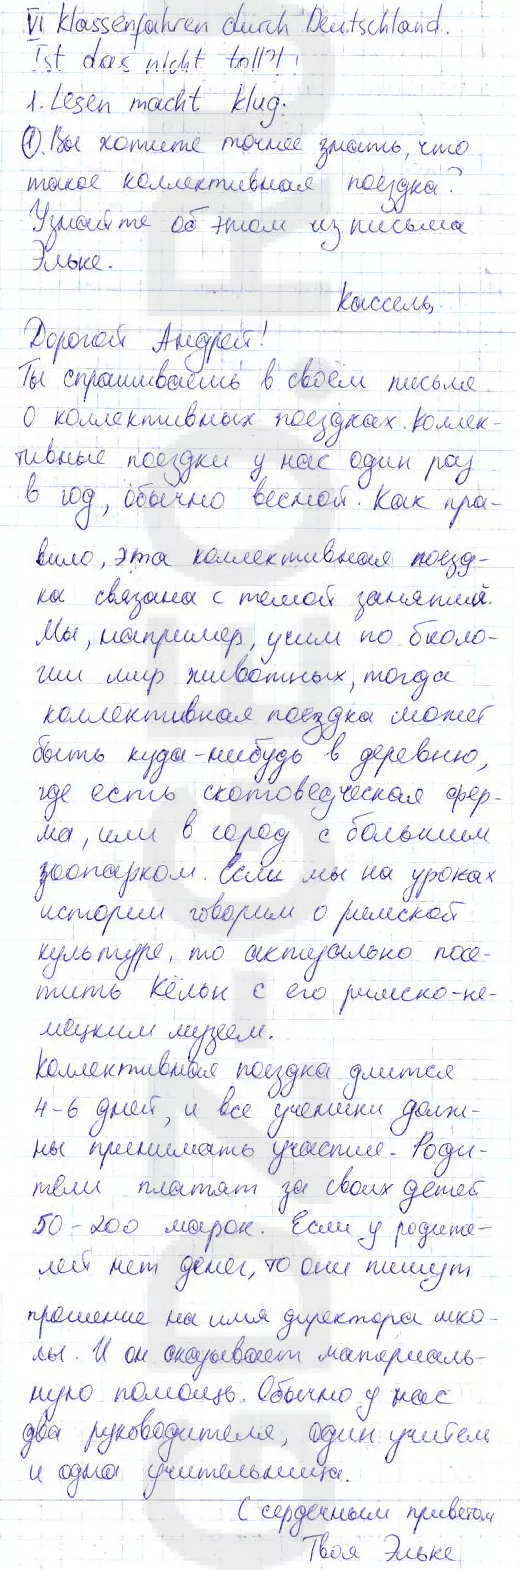 VI Klassenfahren durch Deutschland.
Ist das nicht toll?!
1. Lesen macht klug.
①. Вы хотите точнее знать, что
такое коллективная поездка?
Узнайте об этом из письма
Эльке.
Кассель,
Дорогой Андрей!
Ты спрашиваешь в своём письме
о коллективных поездках. Коллек-
тивные поездки у нас один раз
в год, обычно весной. Как пра-
вило, эта коллективная поезд-
ка связана с темой занятий.
Мы, например, учим по биоло-
гии мир животных, тогда
коллективная поездка может
быть куда-нибудь в деревню,
где есть скотоведческая фер-
ма, или в город с большим
зоопарком. Если мы на уроках
истории говорим о римской
культуре, то актуально посе-
тить Кёльн с его римско-не-
мецким музеем.
Коллективная поездка длится
4-6 дней, и все ученики долж-
ны принимать участие. Роди-
тели платят за своих детей
50-200 марок. Если у родите-
лей нет денег, то они пишут
прошение на имя директора шко-
лы. И он оказывает материаль-
ную помощь. Обычно у нас
два руководителя, один учитель
и одна учительница.
С сердечным приветом
Твоя Эльке
GDZ-GEO.RU